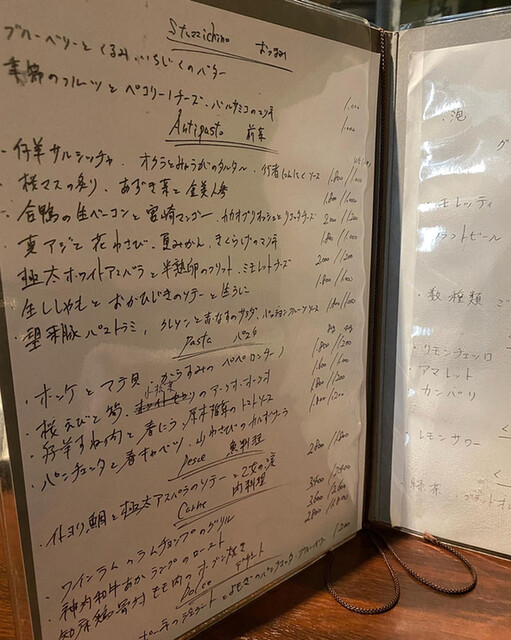 Stuzzichino おつまみ
ブルーベリーとくるみ、いちじくのバター 1,000
季節のフルーツとペコリーノチーズ、バルサミコのマリネ 1,000
Antipasto 前菜
・仔羊サルシッチャ、オクラとみょうがのタルタル、行者にんにくソース 1,800
・桜マスの炙り、あずき菜と金美人参 1,800
・合鴨の生ベーコンと宮崎マンゴー、カカオブリオッシュとリコッタチーズ 2,000
・真アジと花わさび、夏みかん、きくらげのマリネ 1,800
・極太ホワイトアスパラと半熟卵のフリット、ミモレットチーズ 2,000
・生ししゃもとおかひじきのソテーと生うに 1,800
・望来豚パストラミ、クレソンと赤なすのサラダ、パッションフルーツソース 1,800
Pasta パスタ
・ホッケとマテ貝、からすみのペペロンチーノ 1,800
・桜えびと筍、小松菜のアーリオオーリオ 1,600
・仔羊すね肉と春にら、原木椎茸のトマトソース 1,800
・パンチェッタと春キャベツ、山わさびのカルボナーラ 1,800
Pesce 魚料理
・イトヨリ鯛と極太アスパラのソテー 2,800
Carne 肉料理
・ワインラムのラムチョップのグリル 3,600
・神内和牛あかランプのロースト 3,600
・知床鶏骨付もも肉のオーブン焼き 2,800
Dolce デザート
泡
モレッティ
クラフトビール
数種類
・リモンチェッロ
・アマレット
・カンパリ
・レモンサワー
・緑茶